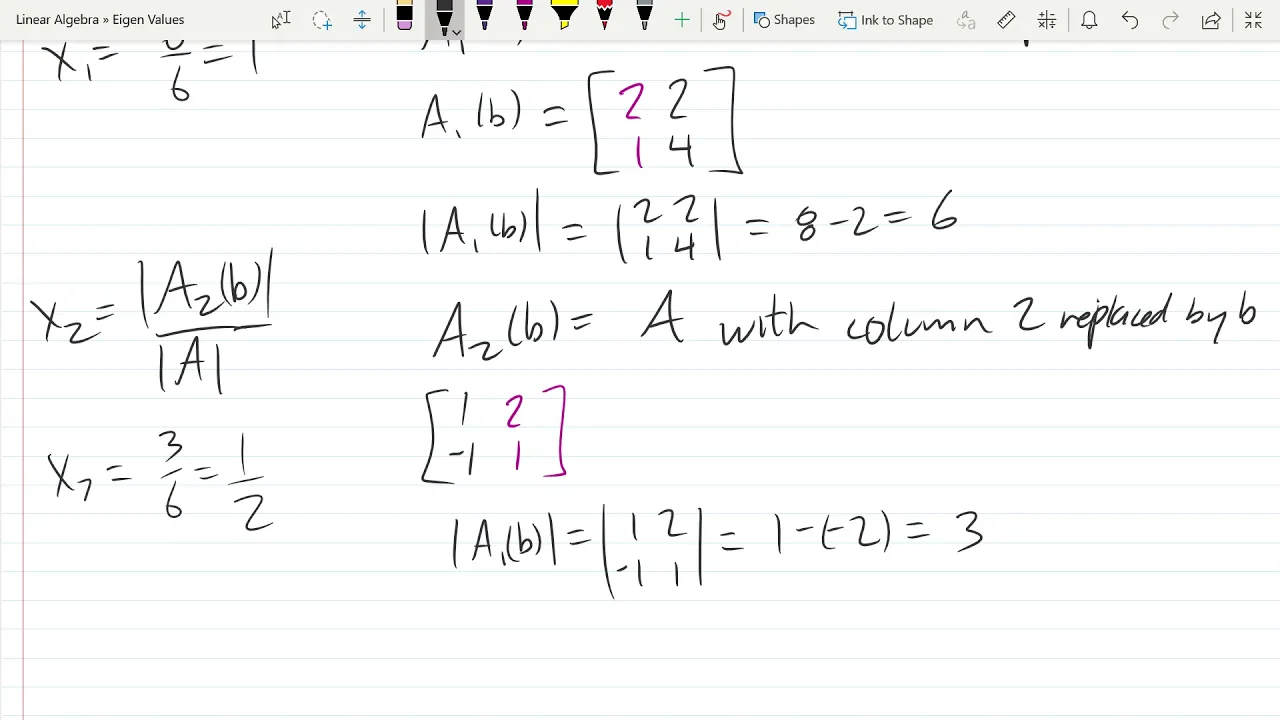 Linear Algebra » Eigen Values
Shapes
Ink to Shape
x₁ = 6/6 = 1
A₁(b) = [2 2
1 4]
|A₁(b)| = |2 2
1 4| = 8 - 2 = 6
x₂ = |A₂(b)| / |A|
A₂(b) = A with column 2 replaced by b
[1 2
-1 1]
x₂ = 3/6 = 1/2
|A₁(b)| = |1 2
-1 1| = 1 - (-2) = 3